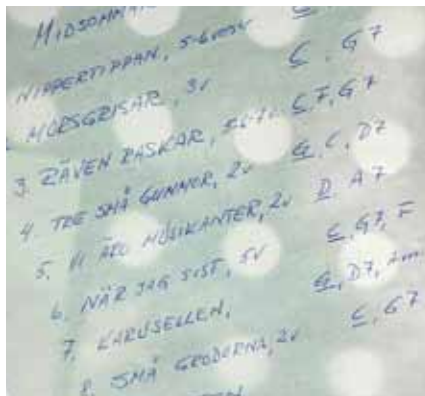 MIDSOMMA
NIPPERTIPPAN, 5-6 C
MORSGRISAR, 3v C, G7
3. RÄVEN RASKAR, C, F, G7
4. TRE SMÅ GUMMOR, 2v G, C, D7
5. VI ÄRO MUSIKANTER, 2v D A7
6. NÄR JAG SIST, 5v C, G7, F
7. KARUSELLEN, G, D7, Am
8. SMÅ GRODORNA, 2v C, G7